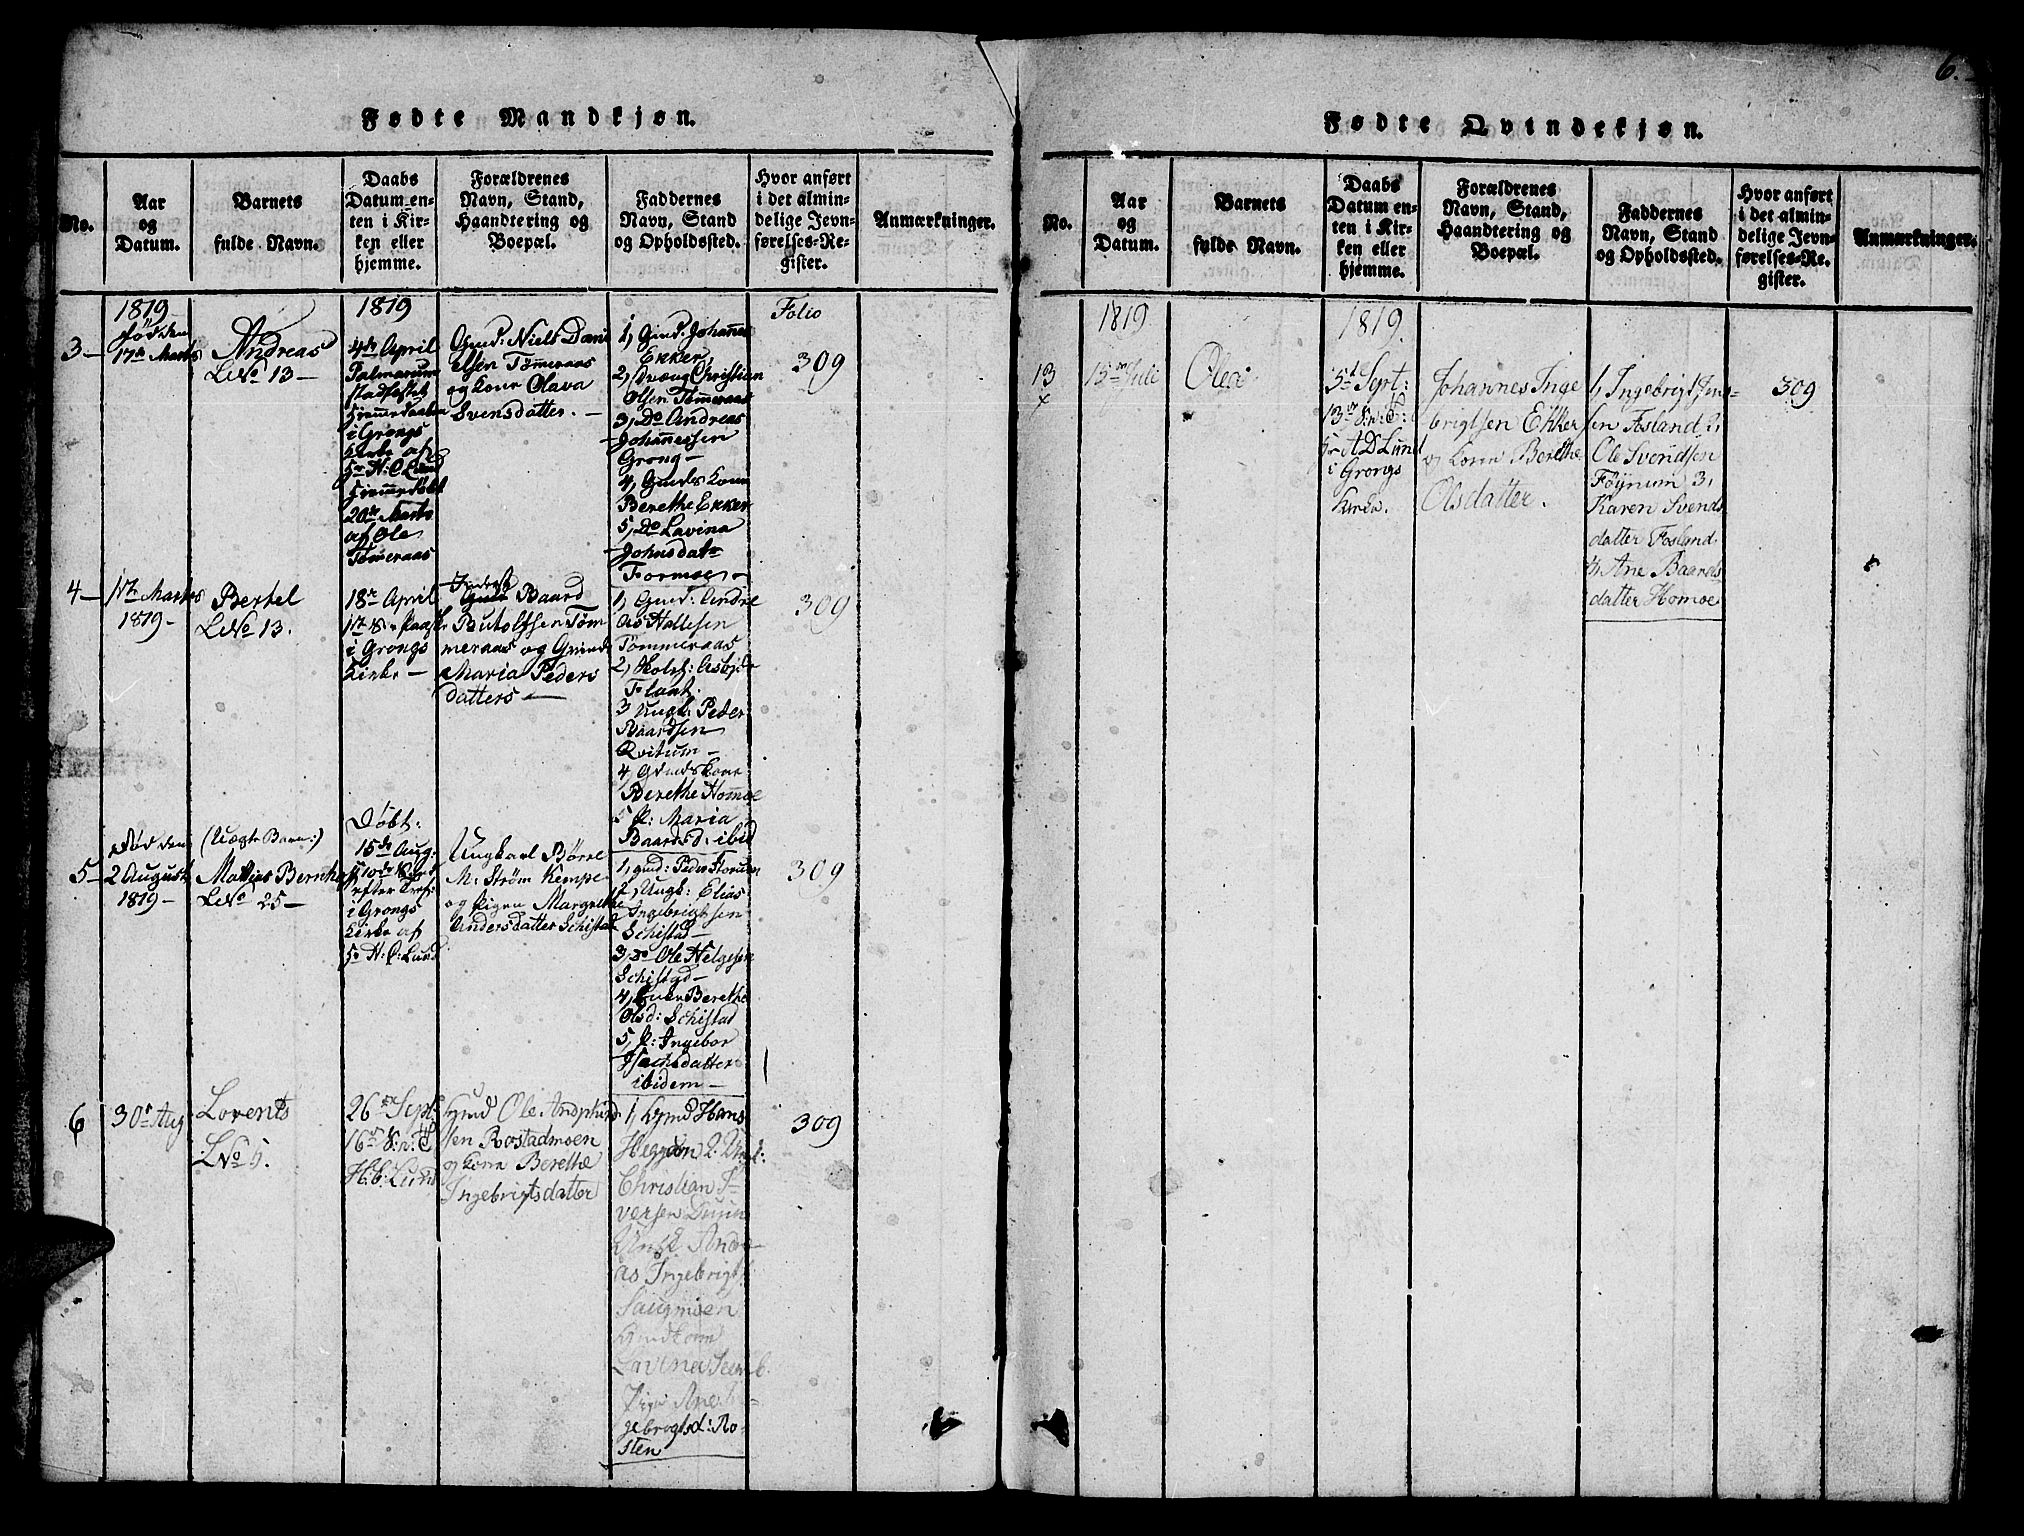 6.
Fødte Mandkjøn.
No.
Aar
og
Datum.
Barnets
fulde Navn.
Daabs
Datum en-
ten i Kir-
ken eller
hjemme.
Forældrenes
Navn, Stand,
Haandtering og
Boepæl.
Faddernes
Navn, Stand
og Opholdssted.
Hvor anført
i det almin-
delige Jevn-
førelses-Re-
gister.
Anmærkninger.
3-
1819
fød den
17de Marts
Andreas
LNo 13-
1819
4de April
Palmarum
stadfæstet
Hiemmedaaben
i Grongs
Kirke af
Hr H: C. Lund
Hiemmedøbt
20de Marts
af Ole
Tømeraas
Gmd: Niels Dani
elsen Tømeraas
og kone Olava
Svensdatter. -
1, Gmd: Johannes
Ekker
2, Christian
Olsen Tømeraas
3, Do Andreas
Johannessen
Grong-
4, Gmds kone
Berethe Ekker
5, Do Lavina
Johnsdatr
Formoe-
Folio
309
4-
17de Marts
1819-
Bertel
LNo 13.
18de April
i Grongs
Kirke-
Baard
Rutolfsen Tøm
meraas og
Maria Peders
datters-
1, Gmd: Andre
as Hallesen
Tømmeraas
2,
Flaat.
3 Ungk: Peder
Baardsen
Qvitum-
4, Gmdskone
Berethe Homoe
5 P: Maria
Baardsd: ibid
309
5-
Fød den
2 August
1819-
(Uægte Barn:)
Mattias Bernho
LNo 25-
Døbt:
15de Aug:
efter
i Grongs
Kirke af
Hr H: C: Lund
Ungkarl Børre
M: Strøm Kempe
og Pigen Margrethe
Andersdatter Schistad
1, gmd: Peder
2, Ungk: Elias
Ingebrigtsen
Schistad-
3, Do Ole Helgesen
Schistad-
4, Berethe
Olsd: Schistad
5, P: Ingebor
Isachsdatter
ibidem-
309
6
30te Aug
Lorents
LNo 5.
26de Sept:
16de S. n. T
H: C: Lund
Gmd Ole
sen Rostadmoen
og kone Berethe
Ingebrigtsdatter
1, Gmd Hans
2.
Christian I-
versen
Andre-
as Ingebrigts
Saugmoen
Gmdkone
Lavina
Pige Ane In-
gebrigtsd: Ro-
sten
309
Fødte Qvindekjøn.
No.
Aar
og
Datum.
Barnets
fulde Navn.
Daabs
Datum en-
ten i Kir-
ken eller
hjemme.
Forældrenes
Navn, Stand,
Haandtering og
Boepæl.
Faddernes
Navn, Stand
og Opholdssted.
Hvor anført
i det almin-
delige Jevn-
førelses-Re-
gister.
Anmærkninger.
13
x
1819
15de Juli
Olea
1819.
5te Sept:
13de S. n. T:
Hr A D Lund
i Grongs
Kirke.
Johannes Inge
brigtsen Ekker
og kone Berethe
Olsdatter.
1, Ingebrigt Jens-
sen Fosland 2,
Ole Svendsen
Føynum 3,
Karen Svends
datter Fosland.
4, Ane Baards
datter Homoe
309